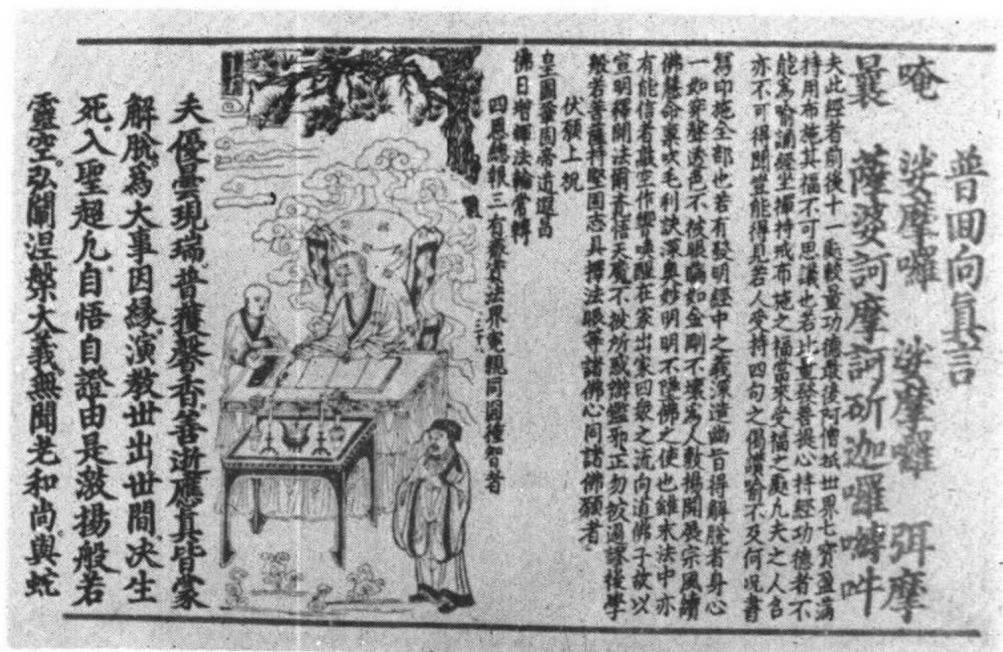 普回向真言
唵　娑摩囉　娑摩囉　弭摩
曩　薩婆訶摩訶斫迦囉嚩吽
夫此經者前後十一處較量功德最後阿僧祇世界七寶盈滿
持用布施其福不可思議也若比童發菩提心持經功德者不
能為喻誦經坐禪持戒布施之福當來受福之處凡夫之人名
亦不可得聞豈能得見若人受持四句之偈讚喻不及何況書
寫印施全部也若有發明經中之義深造幽旨得解脫者身心
一如穿聲透色不被眼瞞如金剛不壞為人敷揚開展宗風續
佛慧命稟吹毛利訣深奧妙明明不墜佛之使也雖末法中亦
有能信者敲空作響喚醒在家出家四眾之流向道佛子故以
宣明釋開法爾青悟天魔不被所惑辯邪正勿被過謬權學
般若菩薩持堅固志具擇法眼等諸佛心同諸佛願者
伏願上祝
皇圖鞏固帝道遐昌
佛日增輝法輪常轉
四恩總報三有齊資法界冤親同圓種智者
夫優曇現瑞普獲馨香善逝應真皆蒙
解脫為大事因緣演教世出世間決生
死入聖超凡自悟自證由是激揚般若
靈空弘闡涅槃大義無聞老和尚與蛇